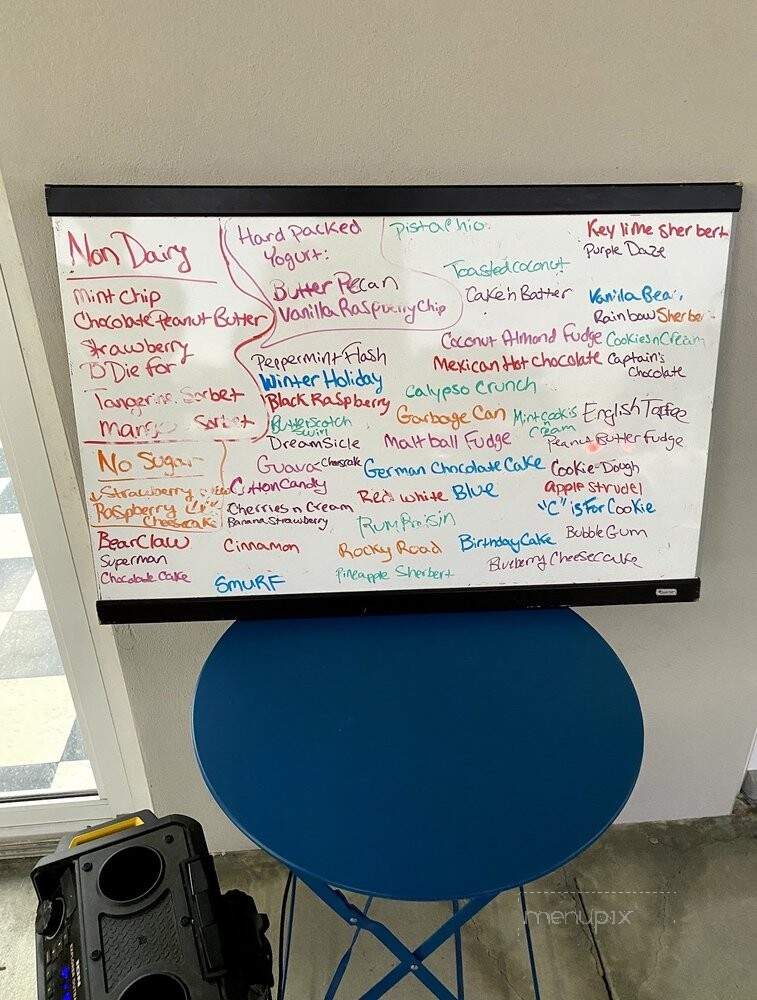 Non Dairy
Mint Chip
Chocolate Peanut Butter
Strawberry
D Die for
Tangerine Sorbet
Mango Sorbet
No Sugar
Strawberry
Raspberry
Cheesecake
Bear Claw
Superman
Chocolate Cake
Hard Packed
Yogurt:
Butter Pecan
Vanilla Raspberry Chip
Peppermint Flash
Winter Holiday
Black Raspberry
Butterscotch
Swirl
Dreamsicle
Guava Cheesecake
Cotton Candy
Cherries n Cream
Banana Strawberry
Cinnamon
Smurf
Pistachio
Toasted coconut
Cake n Batter
Coconut Almond Fudge
Mexican Hot Chocolate
Calypso Crunch
Garbage Can
Mint Cookies
n
Cream
Malt ball Fudge
German Chocolate Cake
Red White Blue
Rum Raisin
Rocky Road
Birthday Cake
Pineapple Sherbert
Key lime Sherbert
Purple Daze
Vanilla Bean
Rainbow Sherber
Cookies n Cream
Captain's
Chocolate
English Toffee
Peanut Butter Fudge
Cookie-Dough
Apple Strudel
"C" is For Cookie
Bubble Gum
Blueberry Cheesecake
menupix